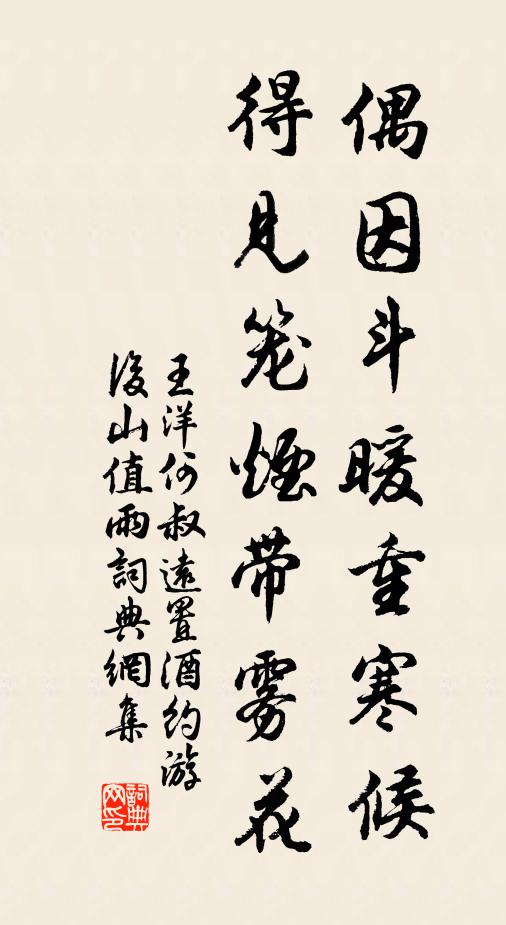 偶因斗暖重寒候
得见笼烟带雾花
王洋何叔遠置酒约游
後山值雨詞典網集
詞典网印